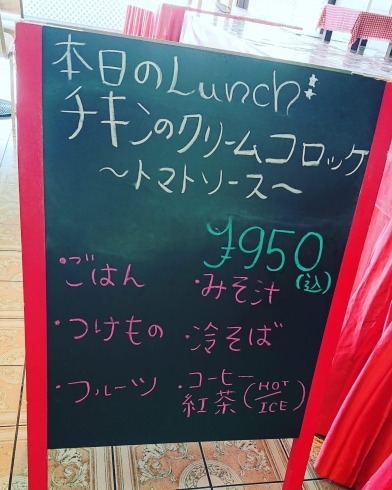 本日のLunch
チキンのクリームコロッケ
～トマトソース～
¥950
(込)
・ごはん ・みそ汁
・つけもの ・冷そば
・フルーツ ・コーヒー
紅茶(HOT/ICE)